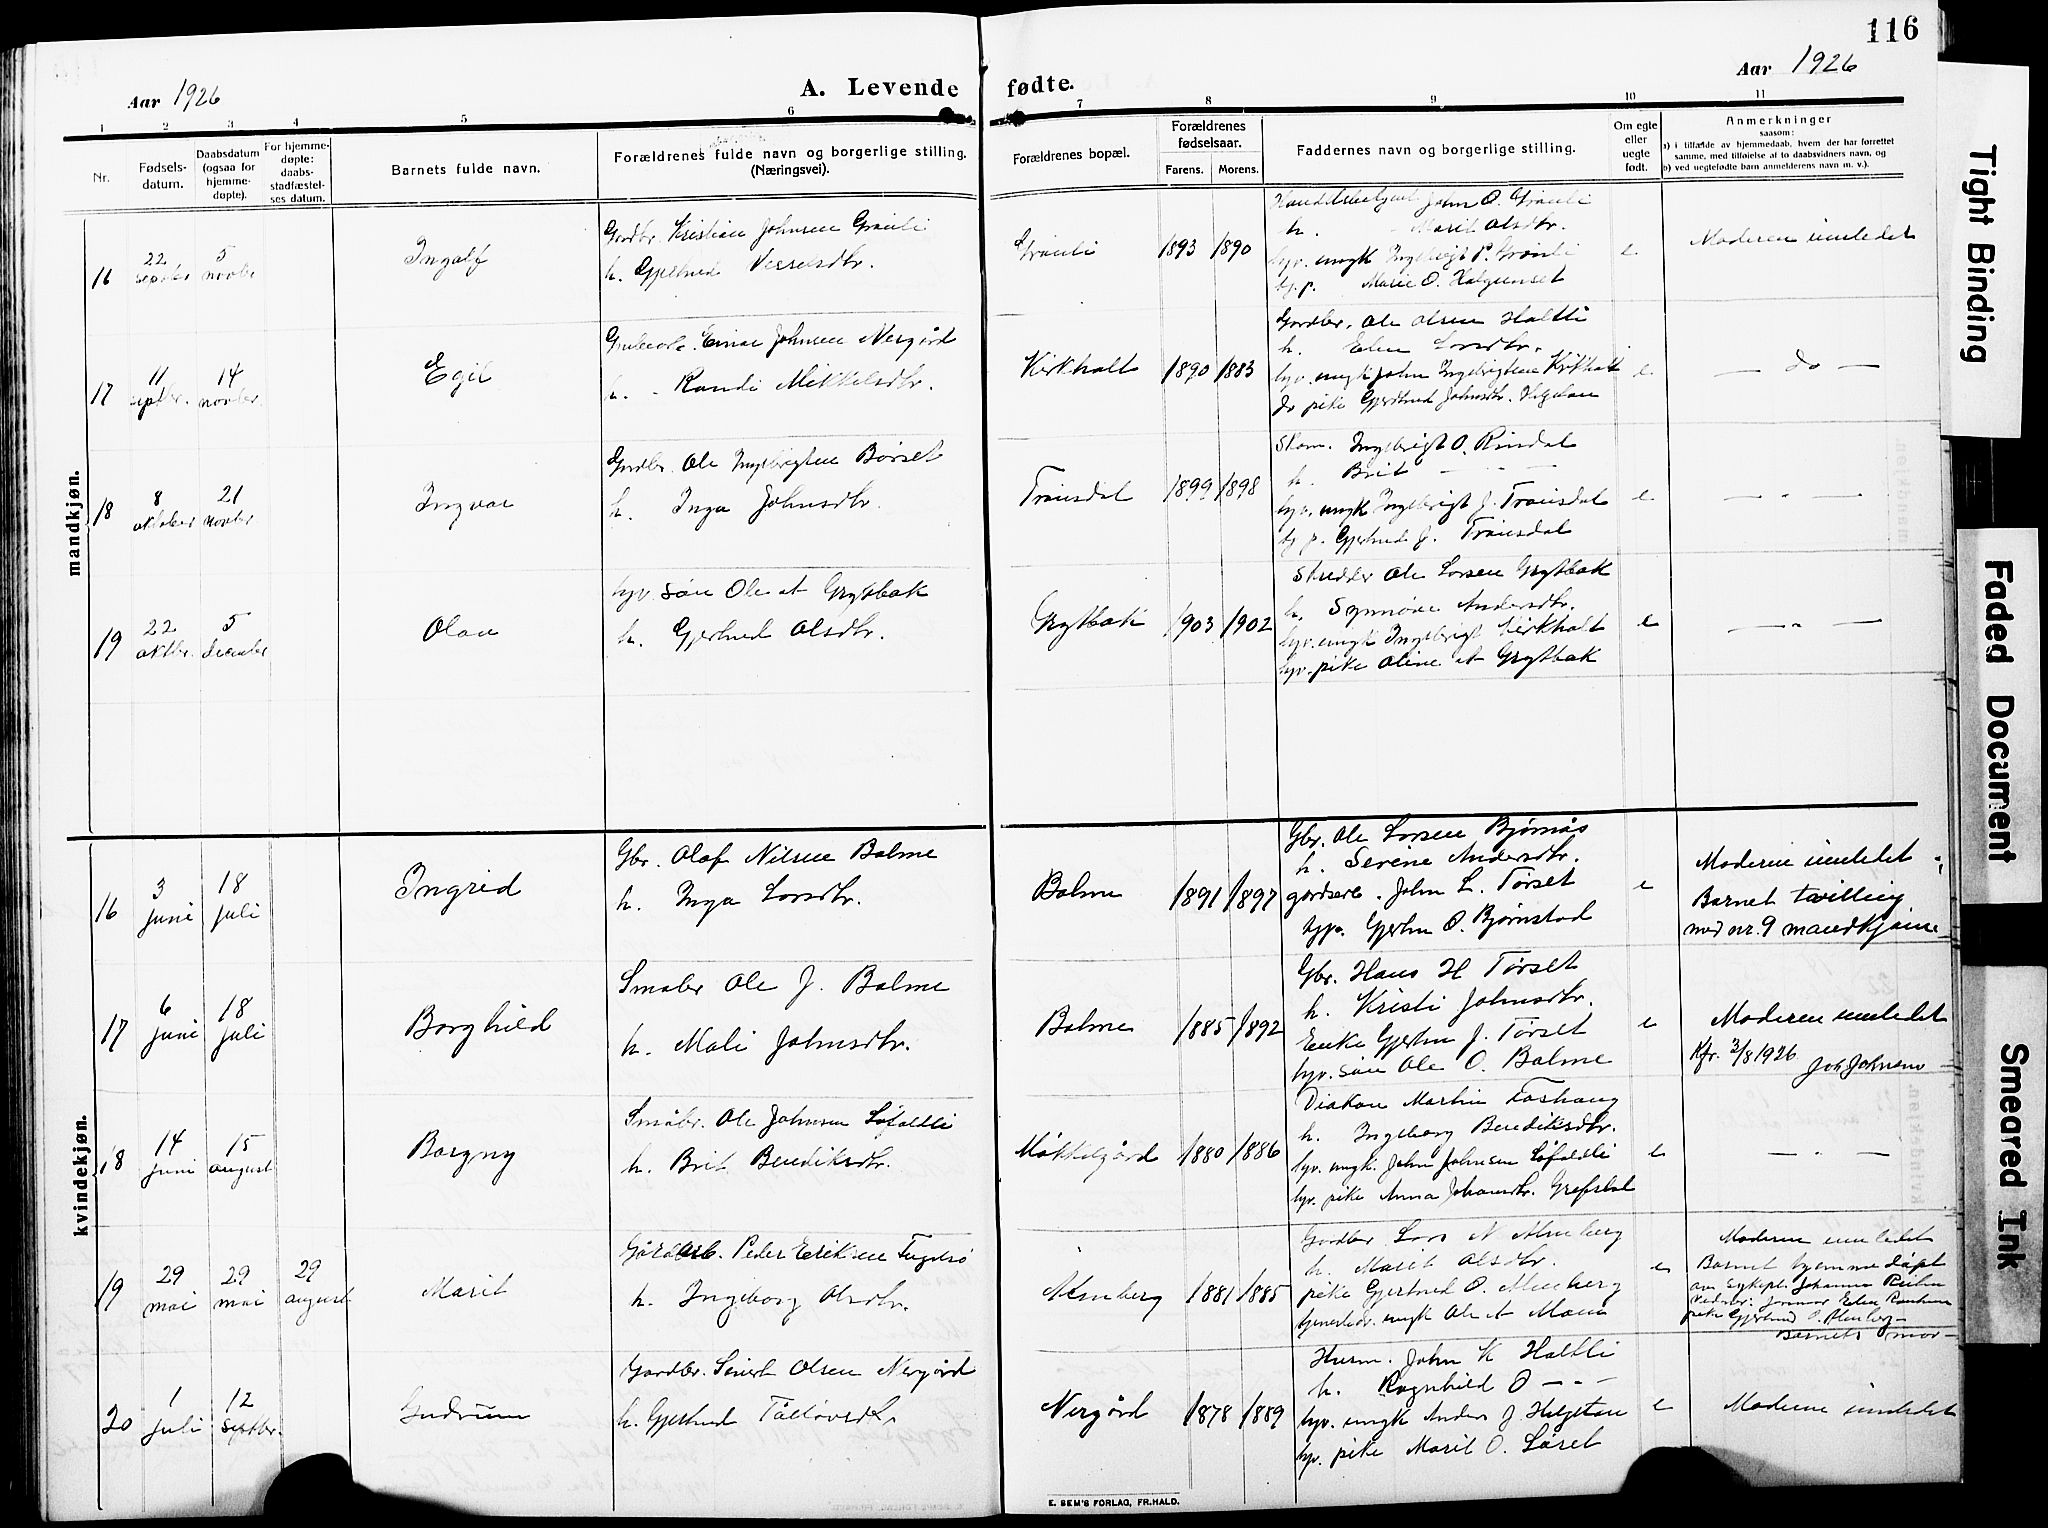 116
Aar 1926
A. Levende fødte.
Aar 1926
1 2 3 4 5 6 7 8 9 10 11
Nr.
Fødsels-
datum.
Daabsdatum
(ogsaa for
hjemme-
døpte).
For hjemme-
døpte:
daabs-
stadfæstel-
ses datum.
Barnets fulde navn.
Forældrenes fulde navn og borgerlige stilling.
(Næringsvei).
Forældrenes bopæl.
Forældrenes
fødselsaar.
Farens. Morens.
Faddernes navn og borgerlige stilling.
Om egte
eller
uegte
født.
Anmerkninger
saasom:
a) i tilfælde av hjemmedaab, hvem der har forrettet
samme, med tilføielse af to daabsvidners navn, og
b) ved uegtefødte barn anmelderens navn m. v.).
mandkjøn.
16
22 septbr
5 novbr
Ingolf
Gardbr. Kristian Johnsen Grønli
h. Gjertrud Nersetsdtr.
Grønli
1893 1890
John O. Grønli
h. Marit Olsdtr.
hjv. ungk Ingebrigt P. Grønli
hj. p. Marie O. Halgunset
e.
Moderen innledet
17
11 septbr.
14 novbr.
Egil
Einar Johnsen Nergård
h. - Randi Mikkelsdtr.
Kirkholt
1890 1883
Gardbr. Ole Olsen Haltli
h. Elen Larsdtr.
hjv. ungk John Ingebrigtsen Kirkholt
do pike Gjertrud Johnsdtr. Hegelan
e.
— do —
18
8 oktober
21 novbr
Ingvar
Gardbr. Ole Ingebrigtsen Børset
h. Inga Johnsdtr.
Trønsdal
1899 1898
Skom. Ingebrigt O. Rindal
h. Brit — " —
hjv. ungk Ingebrigt J. Trønsdal
hj p. Gjertrud J. Trønsdal
e.
— " —
19
22 oktbr.
5 december
Olav
hjv. søn Ole A Grytbak
h. Gjertrud Olsdtr.
Grytbak
1903 1902
Skredder Ole Larsen Grytbak
h. Synnøve Andersdtr.
hjv. ungk Ingebrigt Kirkholt
hjv. pike Oline A Grytbak
e
— " —
kvindekjøn.
16
3 juni
18 juli
Ingrid
Gbr. Olaf Nilsen Bolme
h. Inga Larsdtr.
Bolme
1891 1897
Gbr. Ole Larsen Bjørnås
h. Serine Andersdtr.
gardsarb. John L. Tørset
hjp. Gjertru O. Bjørnstad
e
Moderen innledet
Barnet tvilling
med nr. 9 mandkjønn
17
6 juni
18 juli
Borghild
Småbr Ole J. Bolme
h. Mali Johnsdtr.
Bolme
1885 1892
Gbr. Hans H Tørset
h. Kristi Johnsdtr.
Enke Gjertru J. Tørset
hjv. søn Ole O. Bolme
e
Moderen innledet
Kfr. 3/8 1926 Joh Johnsen
18
14 juni
15 august
Borgny
Småbr. Ole Johnsen Løfaldli
h. Brit Benediktsdtr.
Møkkelgård
1880 1886
Diakon Martin Foshaug
h. Ingeborg Benediktsdtr.
hjv. ungk. John Johnsen Løfaldli
hjv. pike Anna Johansdtr. Grefstal
e
— " —
19
29 mai
29 mai
29 august
Marit
Gårdarb. Peder Eriksen Fugelsø
h. Ingeborg Olsdtr.
Almberg
1881 1885
Gardbr Lars N Almberg
h. Marit Olsdtr.
pike Gjertrud O. Almberg
ungk Ole A Moen
e
Moderen innledet
Barnet hjemmedøpt
av Sykepl. Johanna
Vidner: Jormor Elen
pike Gjertrud O. Almberg—
Barnets mor—
20
1 juli
12 septbr.
Gudrun
Gardbr. Sivert Olsen Nergård
h. Gjertrud
Nergård
1878 1889
Husm. John K Haltli
h. Ragnhild O — " —
hjv. ungk Anders J Helgetun
hjv. pike Marit O. Løset
e
Moderen innledet
E. SEM'S FORLAG, FR.HALD.
Tight Binding
Faded Document
Smeared Ink